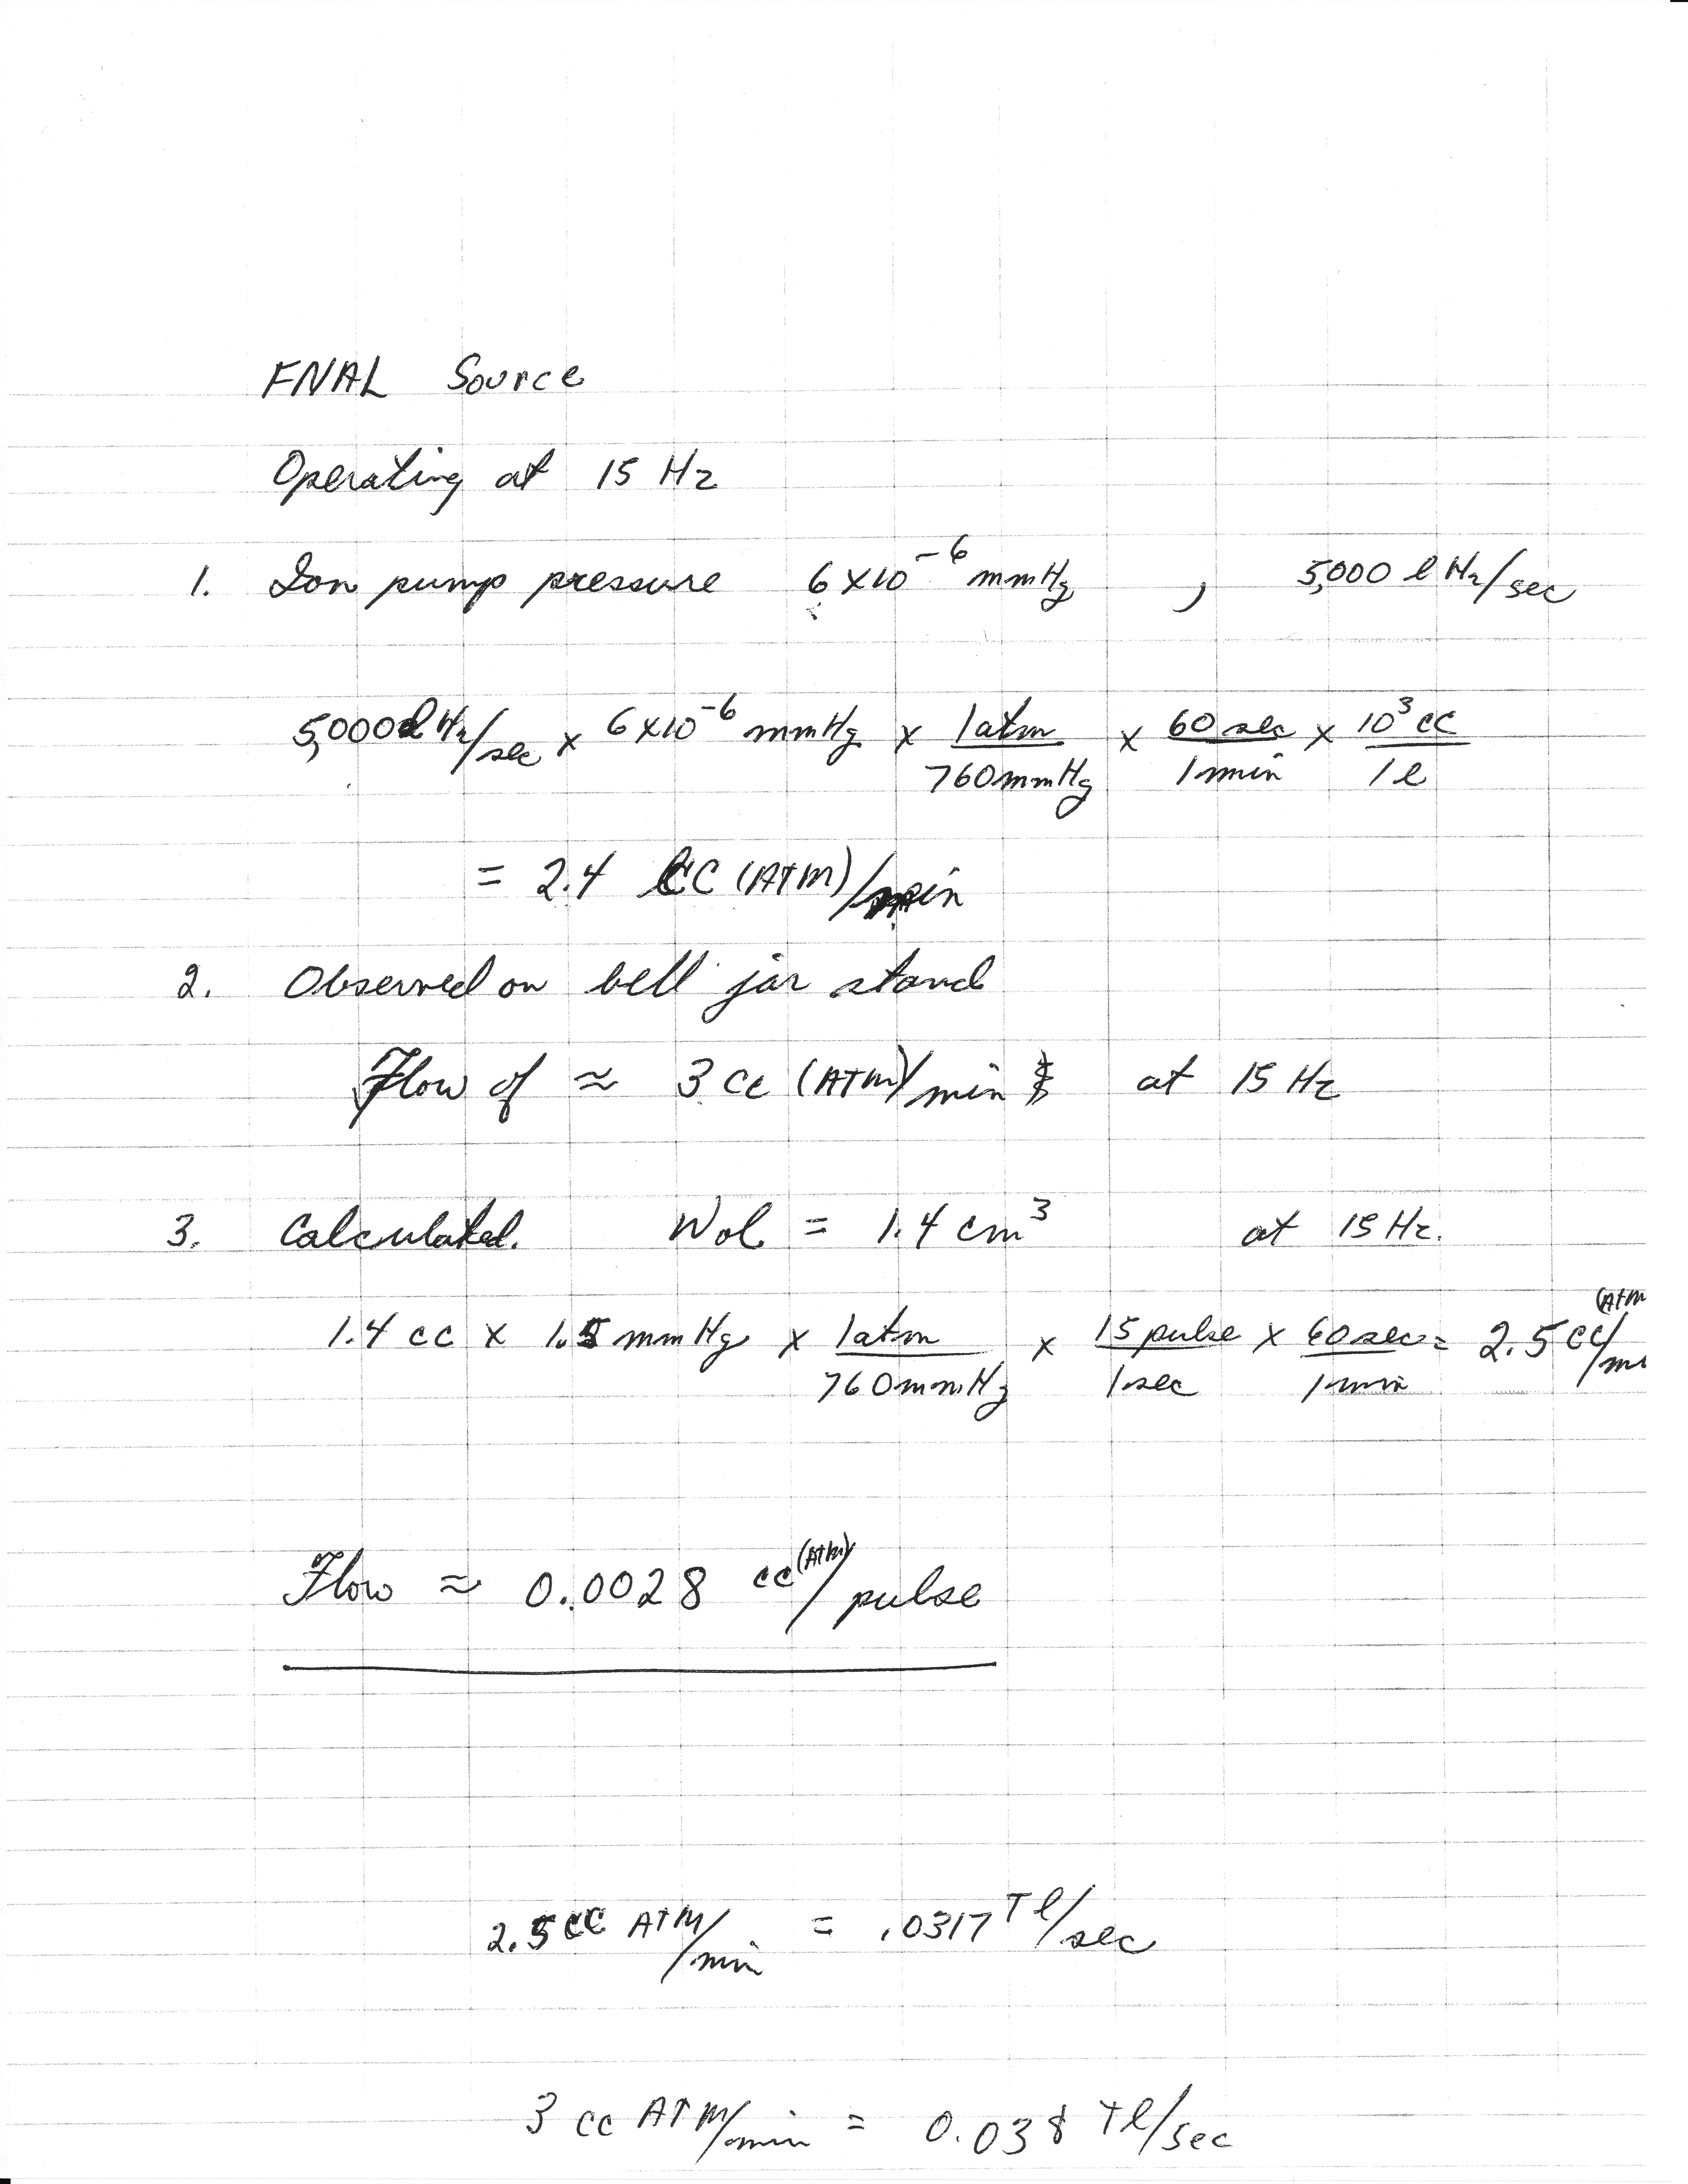 FNAL Source
Operating at 15 Hz
1. Ion pump pressure 6×10⁻⁶ mmHg , 5,000 l H₂/sec
5,000 l H₂/sec × 6×10⁻⁶ mmHg × 1 atm/760 mmHg × 60 sec/1 min × 10³ cc/1 l
= 2.4 CC (ATM)/min
2. Observed on bell jar stand
Flow of ≈ 3 cc (ATM)/min at 15 Hz
3. Calculated. Vol = 1.4 cm³ at 15 Hz.
1.4 cc × 1.5 mmHg × 1 atm/760 mmHg × 15 pulse/1 sec × 60 sec/1 min = 2.5 cc (Atm
Flow ≈ 0.0028 cc (Atm)/pulse
2.5 cc ATM/min = .0317 Tl/sec
3 cc ATM/min = 0.038 Tl/sec